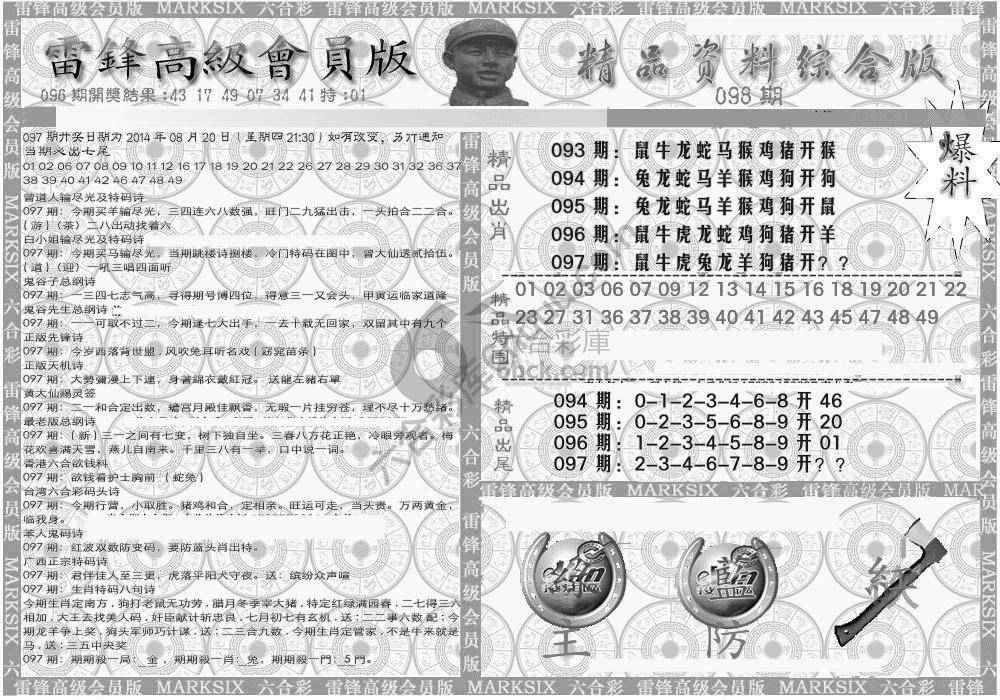 雷锋高级会员版 MARKSIX 六合彩 雷锋高级会员版 MARKSIX 六合彩 雷锋高级会员版 MARKSIX 六合彩 雷锋高级会员版
雷鋒高級會員版
精品资料综合版
096期開獎結果:43 17 49 07 34 41特:01
098期
爆料
097期开奖日期为2014年08月20日(星期四21:30)如有改变，另行通知
当期必出七尾
01 02 06 07 08 09 10 11 12 16 17 18 19 20 21 22 26 27 28 29 30 31 32 36 37
38 39 40 41 42 46 47 48 49
曾道人输尽光及特码诗
097期：今期买羊输尽光，三四连六八数强，旺门二九猛出击，一头拍合二二合。
{游}(茶)二八出动找着六
白小姐输尽光及特码诗
097期：今期买马输尽光，当期跳楼诗捌楼，冷门特码在图中，曾大仙送贰拾伍。
{道}(迎)一吼三唱四面听
鬼谷子总纲诗
097期：一三四七志气高，寻得期号博四位，得意三一又会头，甲寅运临家道隆
鬼谷先生总纲诗
097期：一一可取不过二，今期逢七大出手，一去十载无回家，双留其中有九个
正版先锋诗
097期：今岁西落背世盟．风吹兔耳听名戏{窈窕苗条}
正版天机诗
097期：大勢彌漫上下連，身著綿衣戴紅冠。送龍左豬右單
黄大仙赐灵签
097期：三一和合定出数，蟾宫月殿佳飘香，无瑕一片挂穷在，理不尽十万愁绪。
最老版总纲诗
097期：{新}三一之间有七变，树下独自坐。三春八方花正艳，冷眼旁观者。梅
花欢喜满天雪，燕儿自南来。千里三八有一举，口中说一词。
香港六合欲钱料
097期：欲钱看护士胸前 {蛇兔}
台湾六合彩码头诗
097期：今期行营，小取胜。猪鸡和合，定相亲。旺运可走，当头贵。万两黄金，
临我身。
笨人鬼码诗
097期：红波双数防变码，要防蓝头肖出特。
广西正宗特码诗
097期：君伴佳人至三更，虎落平阳犬守夜。送：缤纷众声喧
097期：生肖特码八句诗
今期生肖定南方，狗打老鼠无功劳．腊月冬季宰大猪．特定红绿满园春．二七得三六
相加．大王去找美人码．奸臣献计斩忠良．七月初七有玄机．送：二二事六数 配：今
期龙羊争上奖．狗头军师巧计谋．送：二三合九数．今期生肖定管家．不是牛来就是
马．送：三五中央奖
097期：期期殺一局：金，期期殺一肖：兔，期期殺一門：5門。
精品出肖
093期：鼠牛龙蛇马猴鸡猪开猴
094期：兔龙蛇马羊猴鸡狗开狗
095期：兔龙蛇马羊猴鸡狗开鼠
096期：鼠牛虎龙蛇鸡狗猪开羊
097期：鼠牛虎兔龙羊狗猪开？？
精品特围
01 02 03 06 07 09 12 13 14 15 16 18 19 20 21 22
23 27 31 36 37 38 39 40 41 42 43 45 47 48 49
精品出尾
094期：0-1-2-3-4-6-8开46
095期：0-2-3-5-6-8-9开20
096期：1-2-3-4-5-8-9开01
097期：2-3-4-6-7-8-9开？？
雷锋高级会员版 MARKSIX 六合彩 雷锋高级会员版 MAR
主
防
紅
雷锋高级会员版 MARKSIX 六合彩 雷锋高级会员版 MARKSIX 六合彩 雷锋高级会员版 MARKSIX 六合彩 雷锋高级会员版